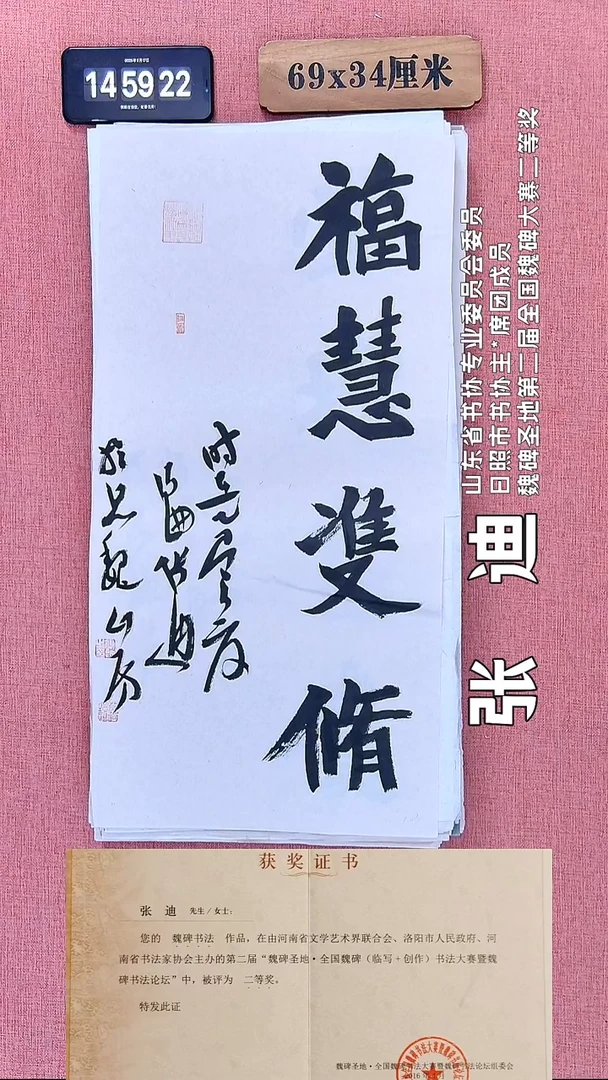 14 59 22
69x34厘米
福慧雙脩
张 迪
山东省书协专业委员会委员
日照市书协主*席团成员
魏碑圣地第二届全国魏碑大赛二等奖
获奖证书
张 迪 先生/女士:
您的 魏碑书法 作品，在由河南省文学艺术界联合会、洛阳市人民政府、河
南省书法家协会主办的第二届“魏碑圣地·全国魏碑（临写+创作）书法大赛暨魏
碑书法论坛”中，被评为 二等奖。
特发此证
魏碑圣地·全国魏碑书法大赛暨魏碑书法论坛组委会